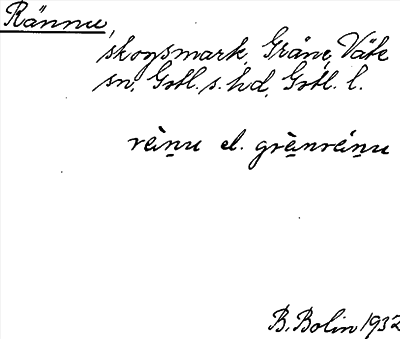 Rännu,
skogsmark, Gräne, Väte
sn, Gotl. s. hd, Gotl. l.
rèi̯ṉu el. grèṉréi̯ṉu
B. Bolin 1932